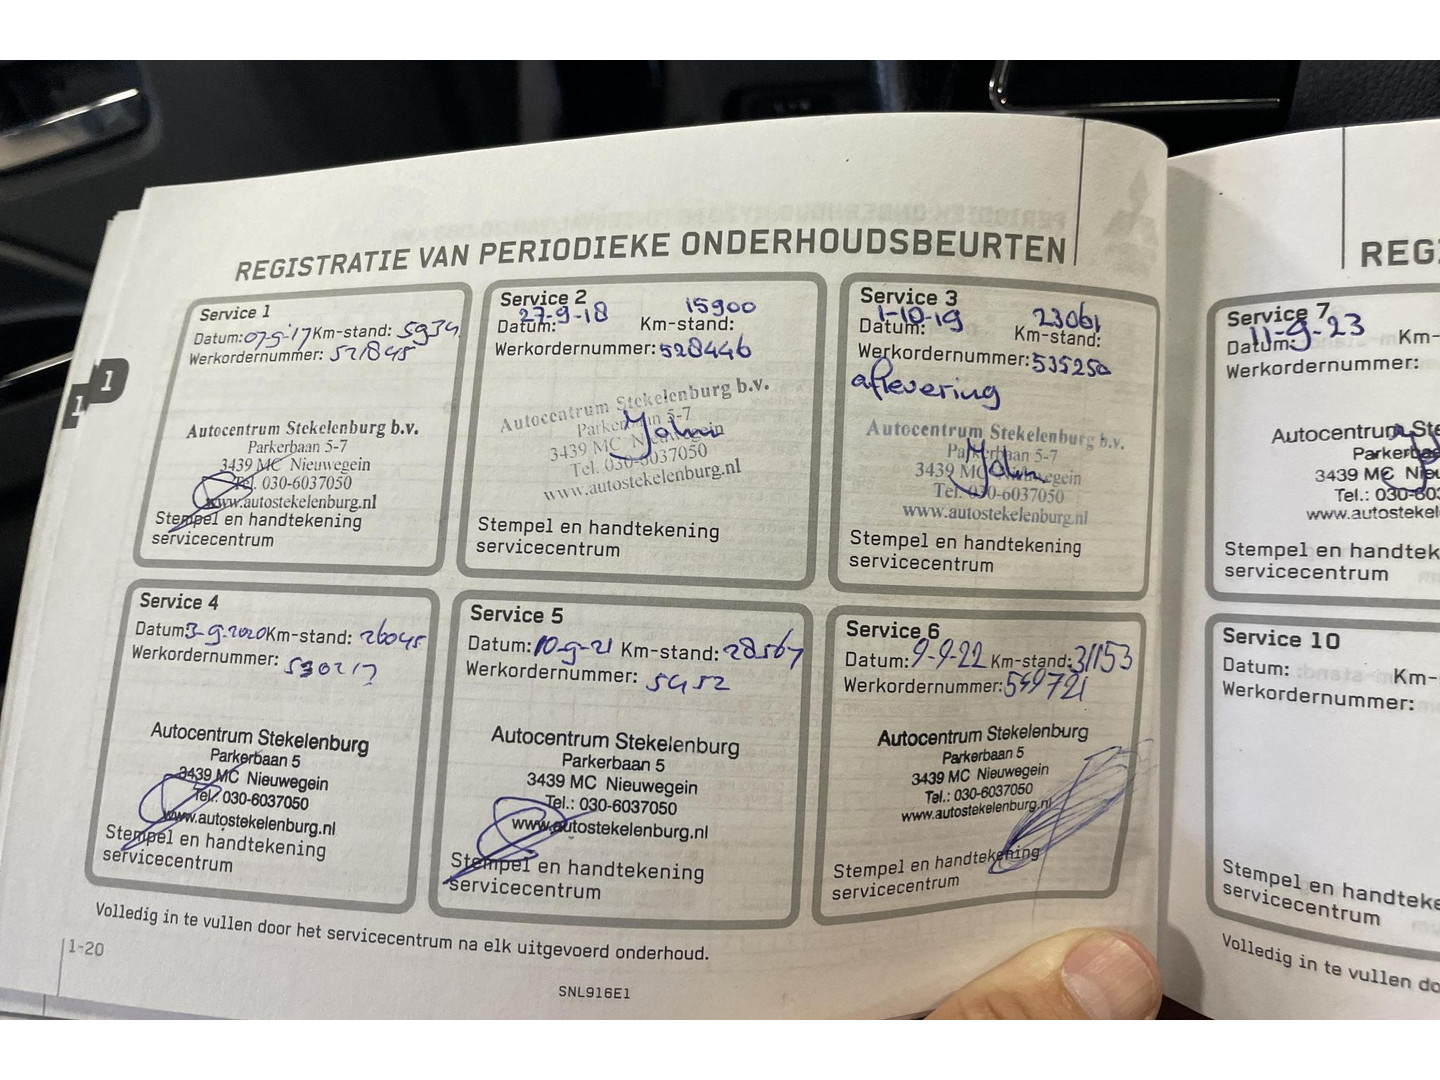 REGISTRATIE VAN PERIODIEKE ONDERHOUDSBEURTEN
Service 1
Datum: 07-9-17 Km-stand: 5934
Werkordernummer: 521845
Autocentrum Stekelenburg b.v.
Parkerbaan 5-7
3439 MC Nieuwegein
Tel. 030-6037050
www.autostekelenburg.nl
Stempel en handtekening
servicecentrum
Service 2
Datum: 27-9-18 Km-stand: 15900
Werkordernummer: 528446
Autocentrum Stekelenburg b.v.
Parkerbaan 5-7
3439 MC Nieuwegein
Tel. 030-6037050
www.autostekelenburg.nl
Stempel en handtekening
servicecentrum
Service 3
Datum: 1-10-19 Km-stand: 23061
Werkordernummer: 535250
aflevering
Autocentrum Stekelenburg b.v.
Parkerbaan 5-7
3439 MC Nieuwegein
Tel. 030-6037050
www.autostekelenburg.nl
Stempel en handtekening
servicecentrum
Service 4
Datum: 3-9-2020 Km-stand: 26045
Werkordernummer:
Autocentrum Stekelenburg
Parkerbaan 5
3439 MC Nieuwegein
Tel.: 030-6037050
www.autostekelenburg.nl
Stempel en handtekening
servicecentrum
Service 5
Datum: 10-9-21 Km-stand: 28567
Werkordernummer: 5452
Autocentrum Stekelenburg
Parkerbaan 5
3439 MC Nieuwegein
Tel.: 030-6037050
www.autostekelenburg.nl
Stempel en handtekening
servicecentrum
Service 6
Datum: 9-9-22 Km-stand: 31153
Werkordernummer: 549721
Autocentrum Stekelenburg
Parkerbaan 5
3439 MC Nieuwegein
Tel.: 030-6037050
www.autostekelenburg.nl
Stempel en handtekening
servicecentrum
Volledig in te vullen door het servicecentrum na elk uitgevoerd onderhoud.
1-20
SNL916E1
1
1
REG
Service 7
Datum: 11-9-23 Km-
Werkordernummer:
Autocentrum Ste
Parkerba
3439 MC Nieu
Tel.: 030-603
www.autostekel
Stempel en handtek
servicecentrum
Service 10
Datum: Km-
Werkordernummer:
Stempel en handteke
servicecentrum
Volledig in te vullen do